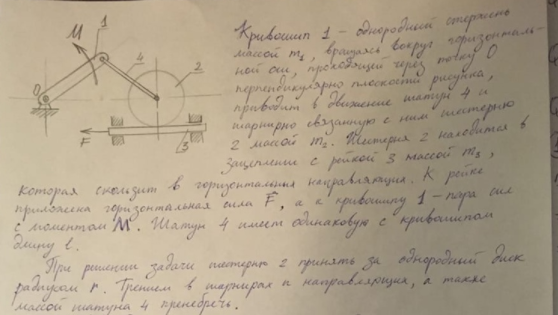 M
1
4
2
O
F
3
Кривошип 1 – однородный стержень
массой m₁, вращаясь вокруг горизонталь-
ной оси, проходящей через точку O
перпендикулярно плоскости рисунка,
приводит в движение шатун 4 и
шарнирно связанную с ним шестерню
2 массой m₂. Шестерня 2 находится в
зацеплении с рейкой 3 массой m₃,
которая скользит в горизонтальных направляющих. К рейке
приложена горизонтальная сила F̄, а к кривошипу 1 – пара сил
с моментом M. Шатун 4 имеет одинаковую с кривошипом
длину l.
При решении задачи шестерню 2 принять за однородный диск
радиусом r. Трением в шарнирах и направляющих, а также
массой шатуна 4 пренебречь.